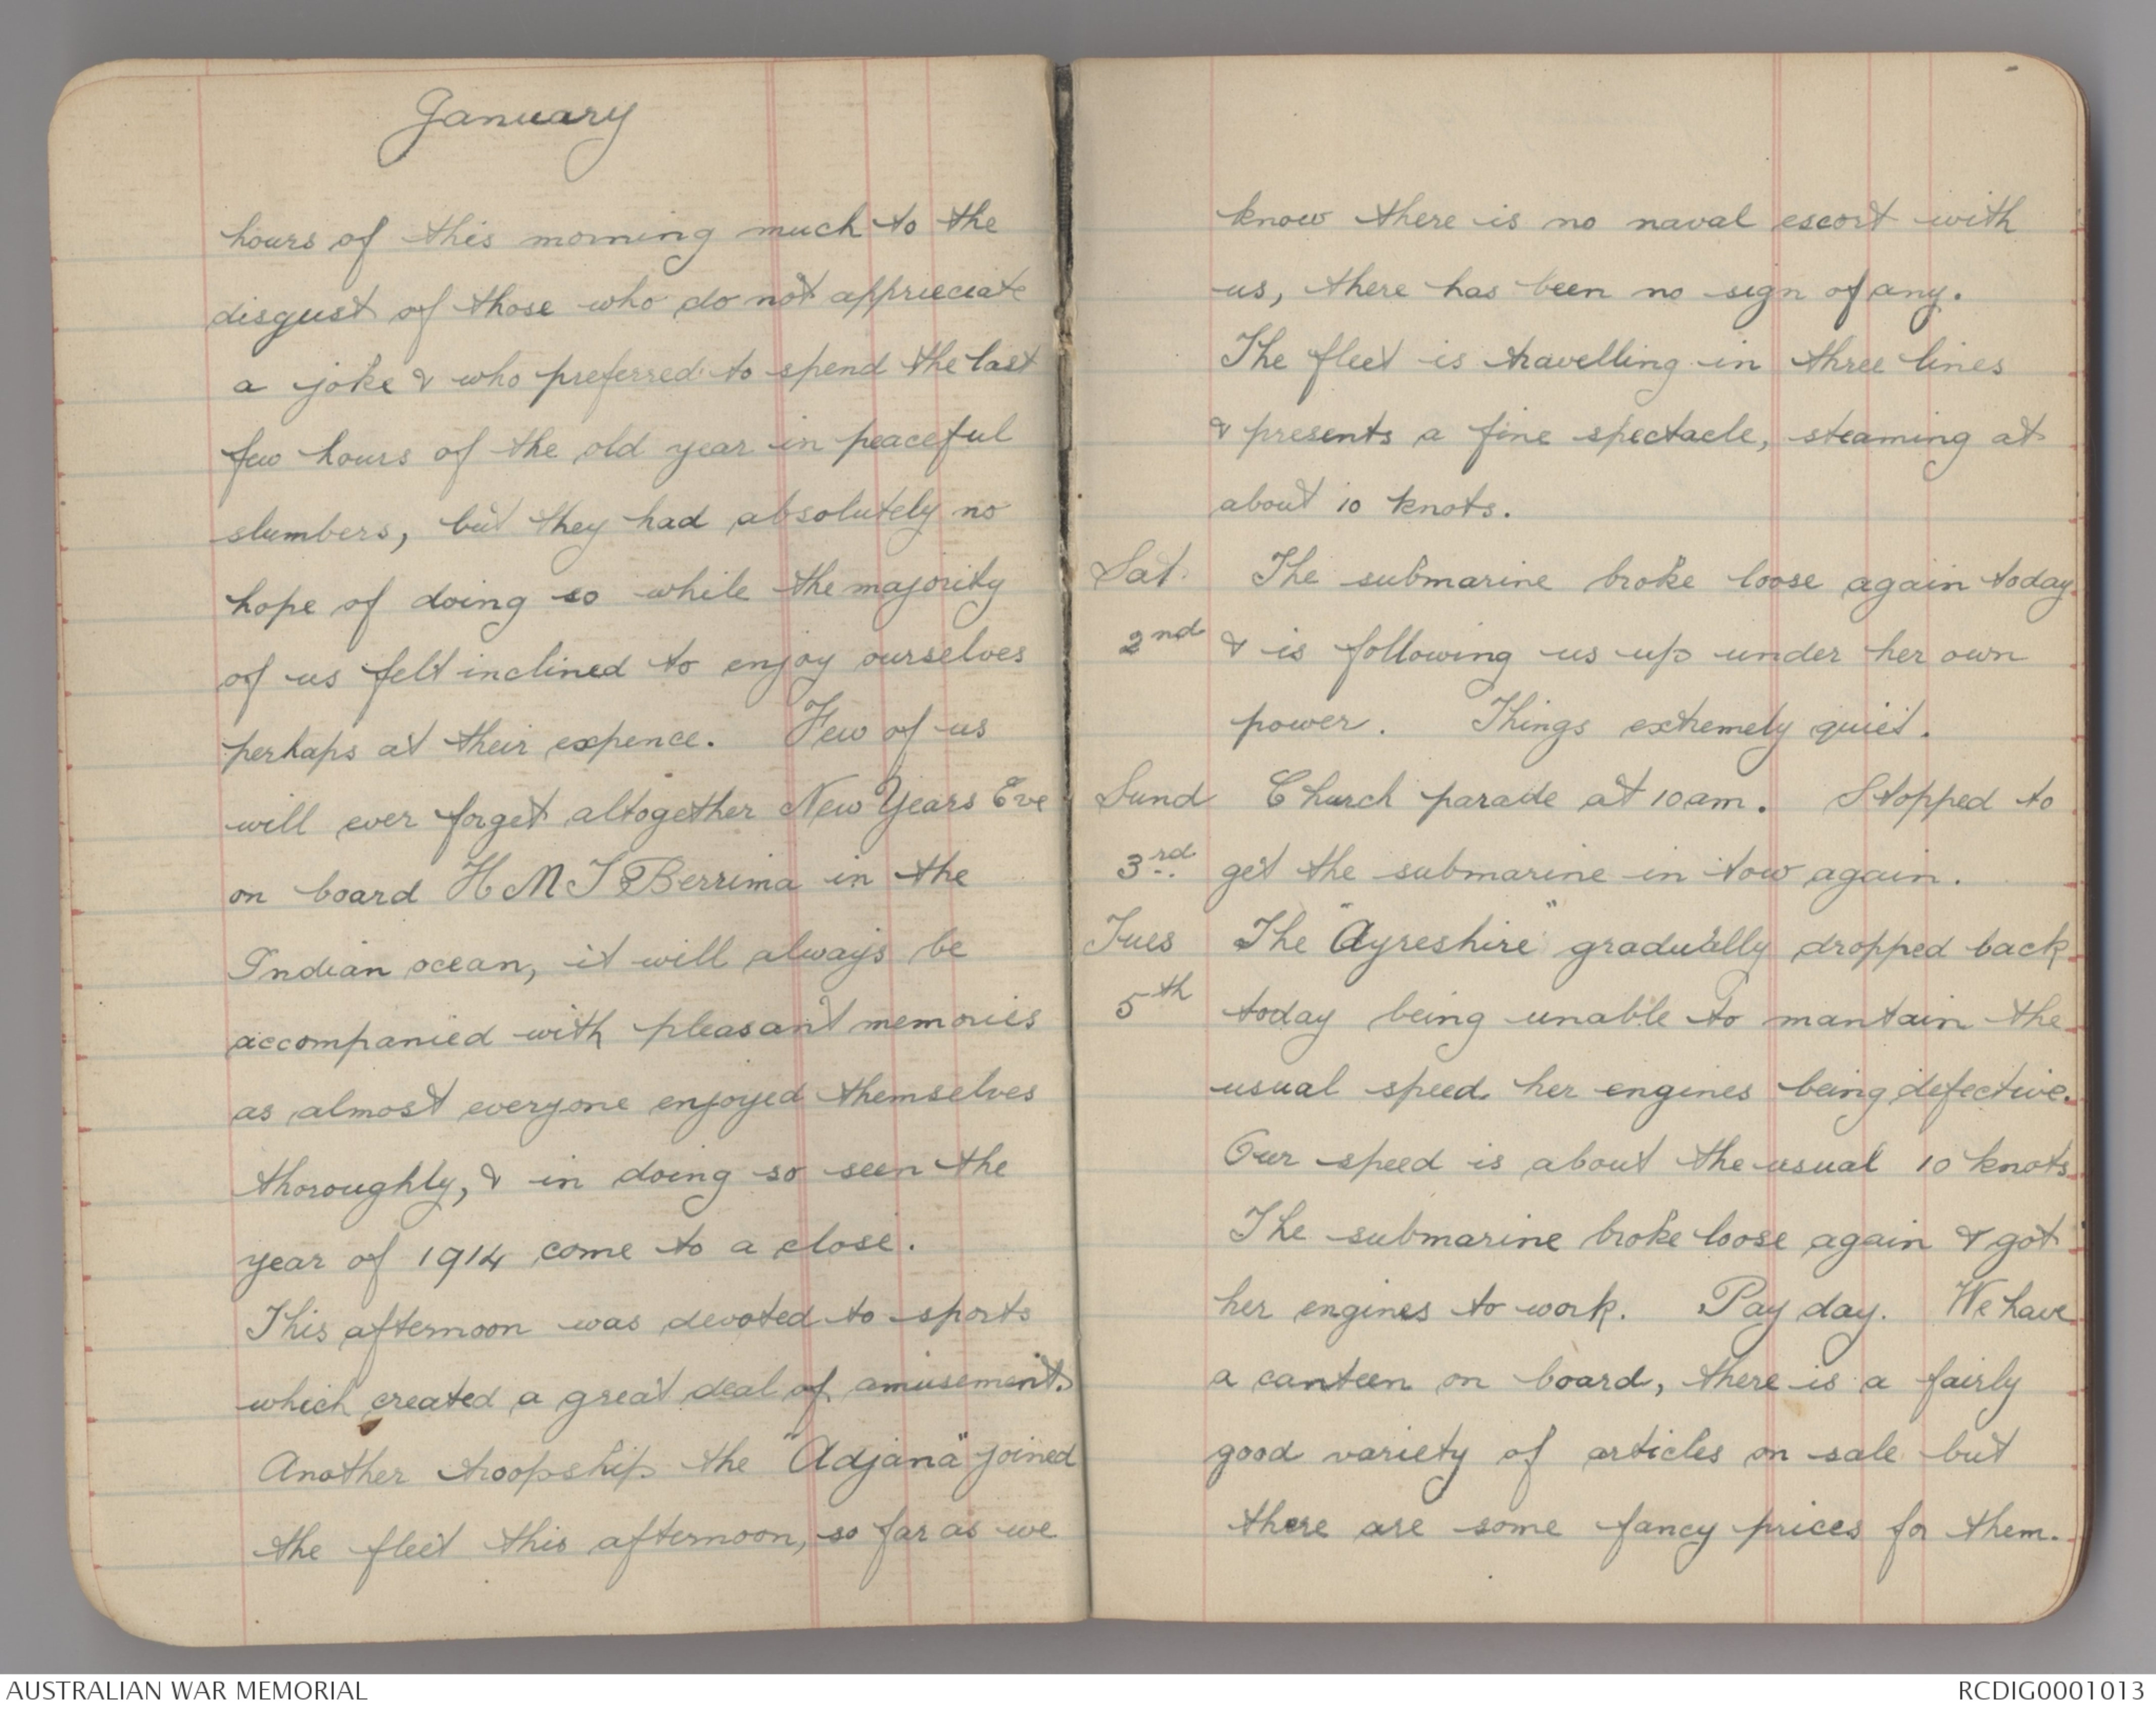 January
hours of this morning much to the
disgust of those who do not apprieciate
a joke & who preferred to spend the last
few hours of the old year in peaceful
slumbers, but they had absolutely no
hope of doing so while the majority
of us felt inclined to enjoy ourselves
perhaps at their expence. Few of us
will ever forget altogether New Years Eve
on board HMT Berrima in the
Indian ocean, it will always be
accompanied with pleasant memories
as almost everyone enjoyed themselves
thoroughly, & in doing so seen the
year of 1914 come to a close.
This afternoon was devoted to sports
which created a great deal of amusement.
Another troopship the "Adjana" joined
the fleet this afternoon, so far as we
know there is no naval escort with
us, there has been no sign of any.
The fleet is travelling in three lines
& presents a fine spectacle, steaming at
about 10 knots.
Sat. The submarine broke loose again today
2nd & is following us up under her own
power. Things extremely quiet.
Sund Church parade at 10am. Stopped to
3rd get the submarine in tow again.
Tues The "Ayreshire" gradually dropped back
5th today being unable to mantain the
usual speed her engines being defective.
Our speed is about the usual 10 knots
The submarine broke loose again & got
her engines to work. Pay day. We have
a canteen on board, there is a fairly
good variety of articles on sale but
there are some fancy prices for them.
AUSTRALIAN WAR MEMORIAL
RCDIG0001013